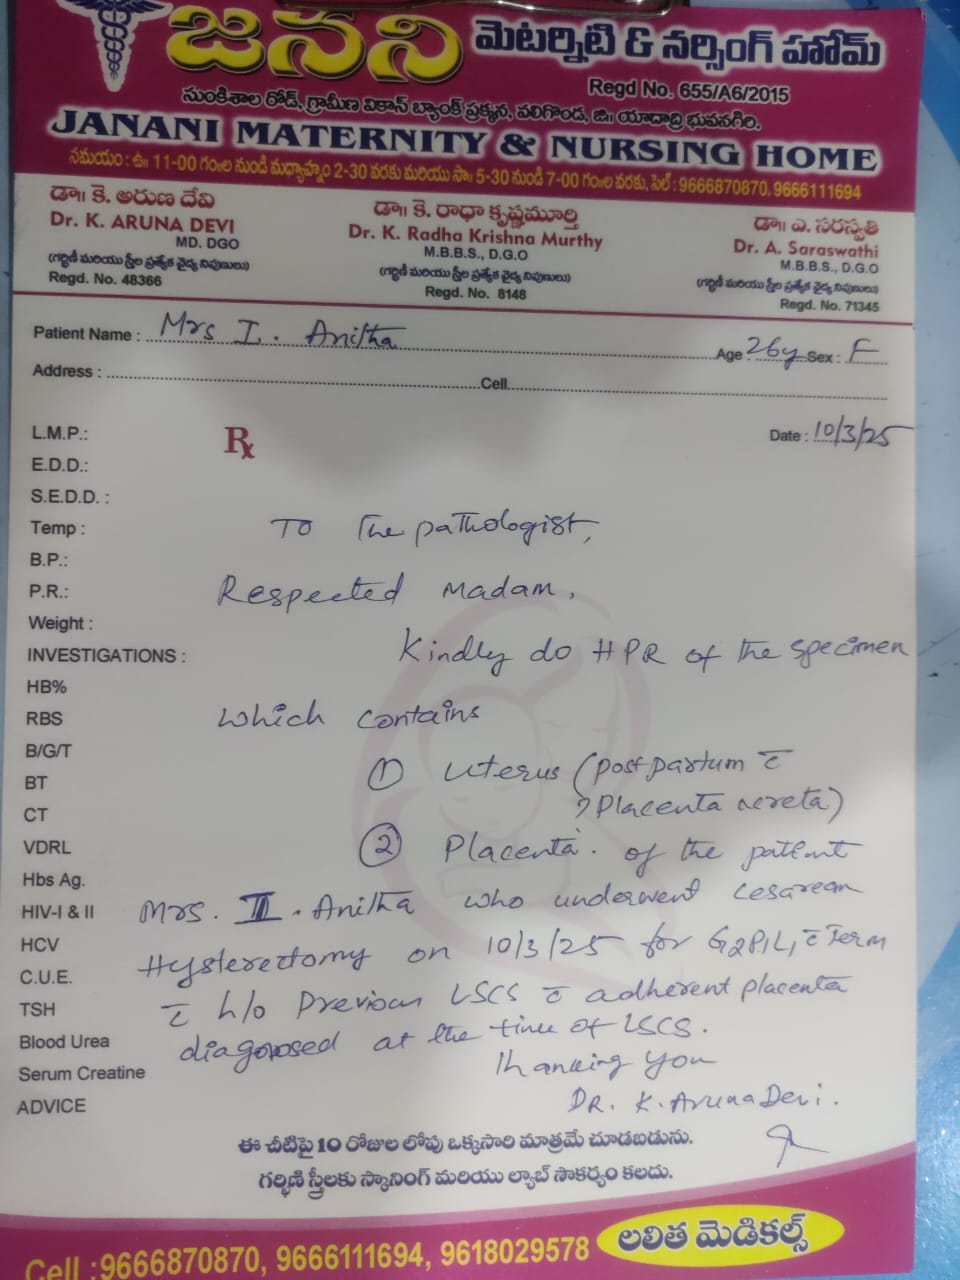 జనని మెటర్నిటి & నర్సింగ్ హోమ్
Regd No. 655/A6/2015
సుంకిశాల రోడ్, గ్రామీణ వికాస్ బ్యాంక్ ప్రక్కన, వలిగొండ, జి॥ యాదాద్రి భువనగిరి.
JANANI MATERNITY & NURSING HOME
సమయం : ఉ॥ 11-00 గం॥ల నుండి మధ్యాహ్నం 2-30 వరకు మరియు సా॥ 5-30 నుండి 7-00 గం॥ల వరకు, సెల్ : 9666870870, 9666111694
డా॥ కె. అరుణ దేవి
Dr. K. ARUNA DEVI
MD. DGO
(గర్భిణీ మరియు స్త్రీల ప్రత్యేక వైద్య నిపుణులు)
Regd. No. 48366
డా॥ కె. రాధా కృష్ణమూర్తి
Dr. K. Radha Krishna Murthy
M.B.B.S., D.G.O
(గర్భిణీ మరియు స్త్రీల ప్రత్యేక వైద్య నిపుణులు)
Regd. No. 8148
డా॥ ఎ. సరస్వతి
Dr. A. Saraswathi
M.B.B.S., D.G.O
(గర్భిణీ మరియు స్త్రీల ప్రత్యేక వైద్య నిపుణులు)
Regd. No. 71345
Patient Name : Mrs I. Anitha Age : 26y Sex : F
Address : Cell
L.M.P.: Rx Date : 10/3/25
E.D.D.:
S.E.D.D. :
Temp : To The pathologist,
B.P.:
P.R.: Respected Madam,
Weight :
INVESTIGATIONS : Kindly do HPR of the specimen
HB%
RBS which contains
B/G/T
BT ① Uterus (post partum c̄
CT ? Placenta acreta)
VDRL ② Placenta. of the patient
Hbs Ag.
HIV-I & II Mrs. I. Anitha who underwent cesarean
HCV Hysterectomy on 10/3/25 for G2P1L1 c̄ Term
C.U.E.
TSH c̄ h/o Previous LSCS c̄ adherent placenta
Blood Urea diagonosed at the time of LSCS.
Serum Creatine Thanking you
ADVICE DR. K. Aruna Devi.
ఈ చీటిపై 10 రోజుల లోపు ఒక్కసారి మాత్రమే చూడబడును.
గర్భిణి స్త్రీలకు స్కానింగ్ మరియు ల్యాబ్ సౌకర్యం కలదు.
Cell :9666870870, 9666111694, 9618029578 లలిత మెడికల్స్